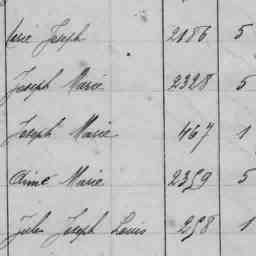 Joseph 2186 5
Joseph Marie 2328 5
Joseph Marie 467 1
Aimé Marie 2359 5
Jules Joseph Louis 258 1